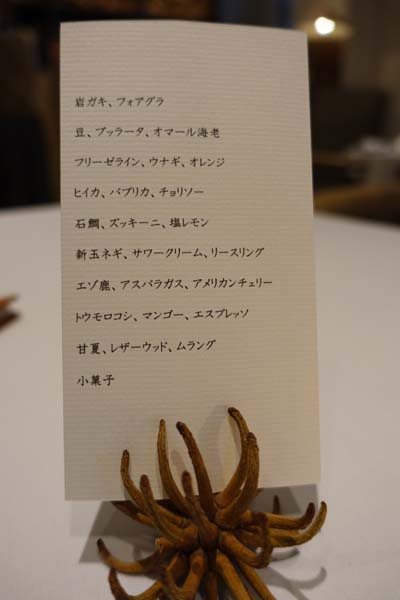 岩ガキ、フォアグラ
豆、ブッラータ、オマール海老
フリーゼライン、ウナギ、オレンジ
ヒイカ、パプリカ、チョリソー
石鯛、ズッキーニ、塩レモン
新玉ネギ、サワークリーム、リースリング
エゾ鹿、アスパラガス、アメリカンチェリー
トウモロコシ、マンゴー、エスプレッソ
甘夏、レザーウッド、ムラング
小菓子